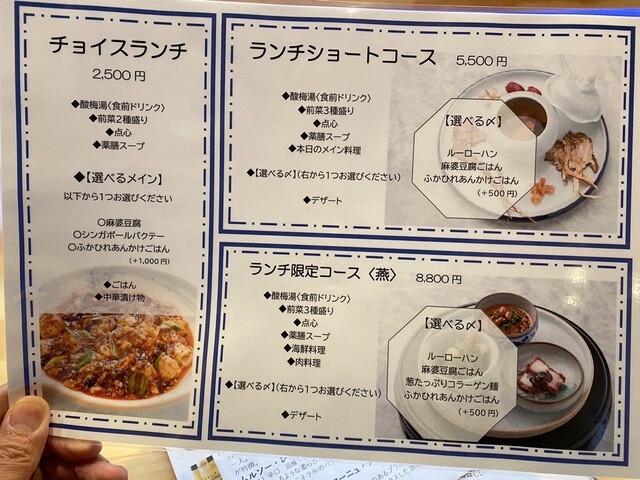 チョイスランチ
2,500円
◆酸梅湯〈食前ドリンク〉
◆前菜2種盛り
◆点心
◆薬膳スープ
◆【選べるメイン】
以下から1つお選びください
○麻婆豆腐
○シンガポールバクテー
○ふかひれあんかけごはん
(+1,000円)
◆ごはん
◆中華漬け物
ランチショートコース 5,500円
◆酸梅湯〈食前ドリンク〉
◆前菜3種盛り
◆点心
◆薬膳スープ
◆本日のメイン料理
◆【選べる〆】(右から1つお選びください)
◆デザート
【選べる〆】
ルーローハン
麻婆豆腐ごはん
ふかひれあんかけごはん
(+500円)
ランチ限定コース〈燕〉 8,800円
◆酸梅湯〈食前ドリンク〉
◆前菜3種盛り
◆点心
◆薬膳スープ
◆海鮮料理
◆肉料理
◆【選べる〆】(右から1つお選びください)
◆デザート
【選べる〆】
ルーローハン
麻婆豆腐ごはん
葱たっぷりコラーゲン麺
ふかひれあんかけごはん
(+500円)